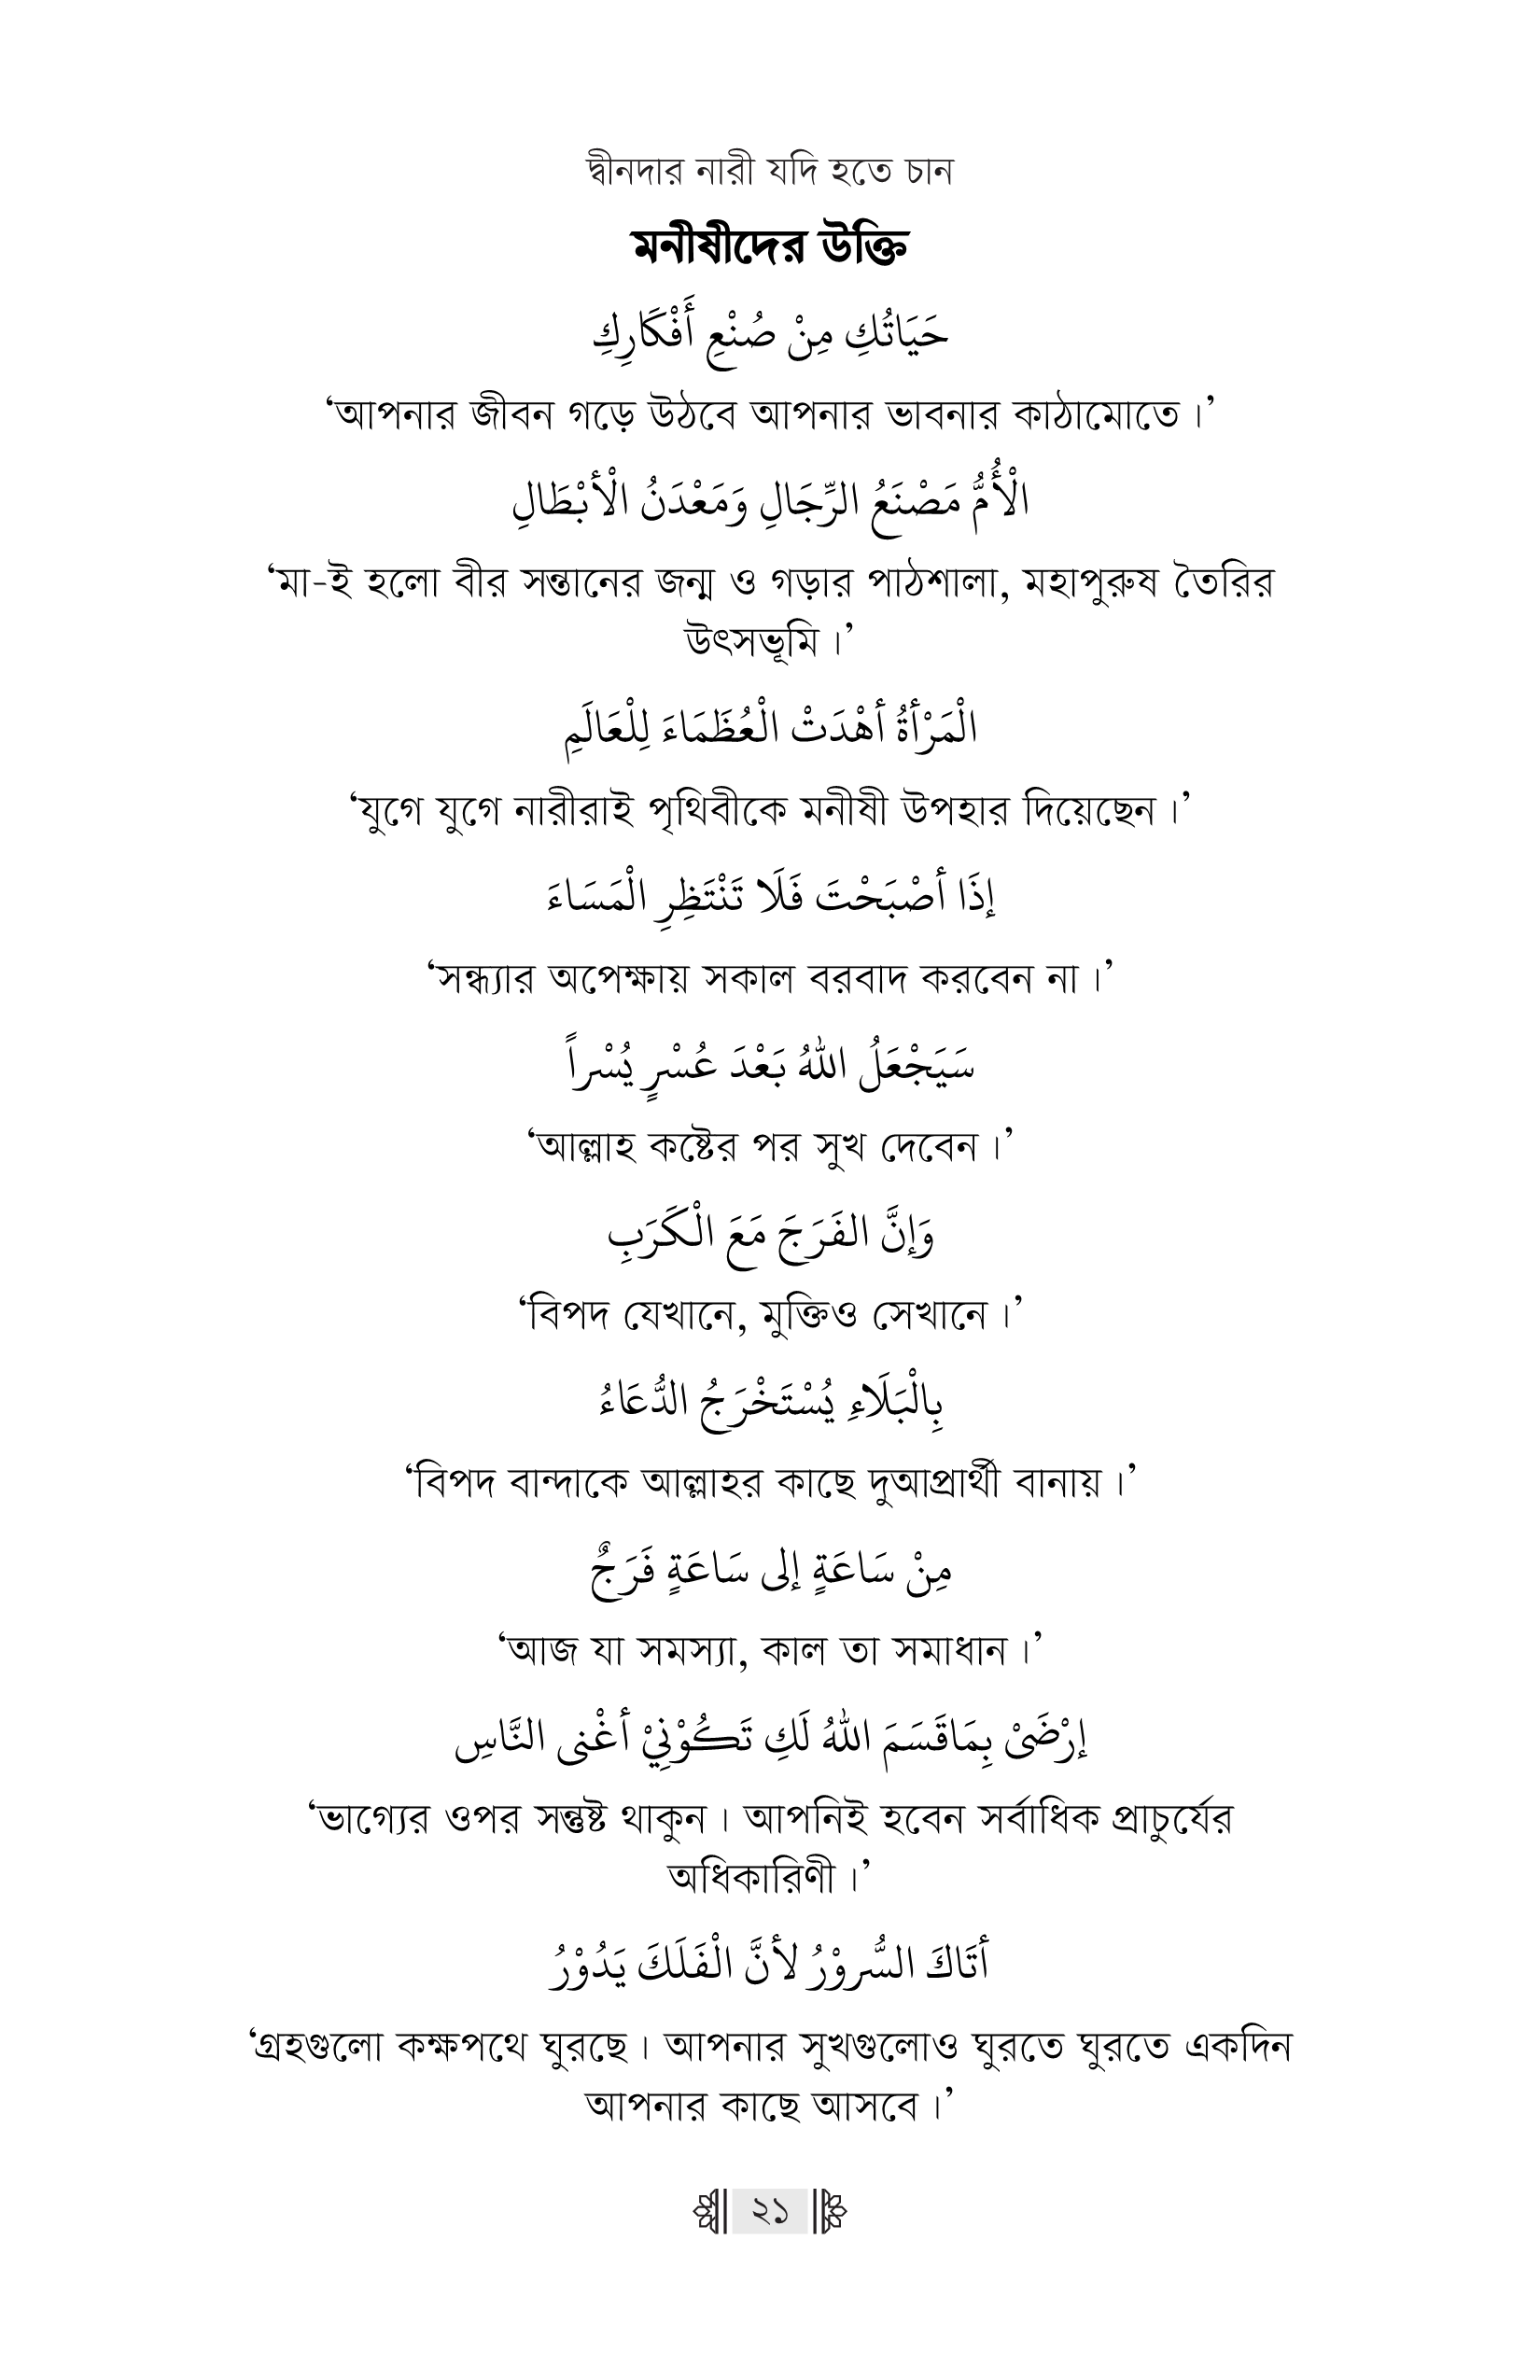 দ্বীনদার নারী যদি হতে চান
মনীষীদের উক্তি
حَيَاتُكِ مِنْ صُنْعِ أَفْكَارِكِ
‘আপনার জীবন গড়ে উঠবে আপনার ভাবনার কাঠামোতে।’
الْأُمُّ مَصْنَعُ الرِّجَالِ وَمَعْدَنُ الْأبْطَالِ
‘মা-ই হলো বীর সন্তানের জন্ম ও গড়ার পাঠশালা, মহাপুরুষ তৈরির
উৎসভূমি।’
الْمَرْأةُ أهْدَتْ الْعُظَمَاءَ لِلْعَالَمِ
‘যুগে যুগে নারীরাই পৃথিবীকে মনীষী উপহার দিয়েছেন।’
إذَا أصْبَحْتَ فَلَا تَنْتَظِرِ الْمَسَاءَ
‘সন্ধ্যার অপেক্ষায় সকাল বরবাদ করবেন না।’
سَيَجْعَلُ اللهُ بَعْدَ عُسْرٍ يُسْراً
‘আল্লাহ কষ্টের পর সুখ দেবেন।’
وَإنَّ الفَرَجَ مَعَ الْكَرَبِ
‘বিপদ যেখানে, মুক্তিও সেখানে।’
بِالْبَلَاءِ يُسْتَخْرَجُ الدُّعَاءُ
‘বিপদ বান্দাকে আল্লাহর কাছে দুআপ্রার্থী বানায়।’
مِنْ سَاعَةٍ إلى سَاعَةٍ فَرَجٌ
‘আজ যা সমস্যা, কাল তা সমাধান।’
إرْضَىْ بِمَاقَسَمَ اللهُ لَكِ تَكُوْنِيْ أغْنى النَّاسِ
‘ভাগ্যের ওপর সন্তুষ্ট থাকুন। আপনিই হবেন সর্বাধিক প্রাচুর্যের
অধিকারিণী।’
أتَاكَ السُّروْرُ لأنَّ الْفَلَكَ يَدُوْرُ
‘গ্রহগুলো কক্ষপথে ঘুরছে। আপনার সুখগুলোও ঘুরতে ঘুরতে একদিন
আপনার কাছে আসবে।’
২১